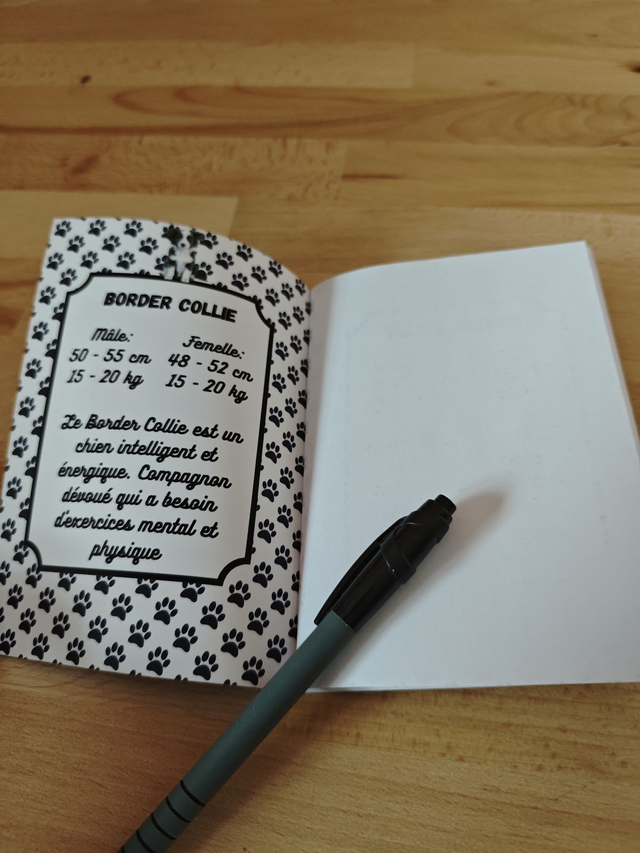 BORDER COLLIE
Mâle:
50 - 55 cm
15 - 20 kg
Femelle:
48 - 52 cm
15 - 20 kg
Le Border Collie est un
chien intelligent et
énergique. Compagnon
dévoué qui a besoin
d'exercices mental et
physique